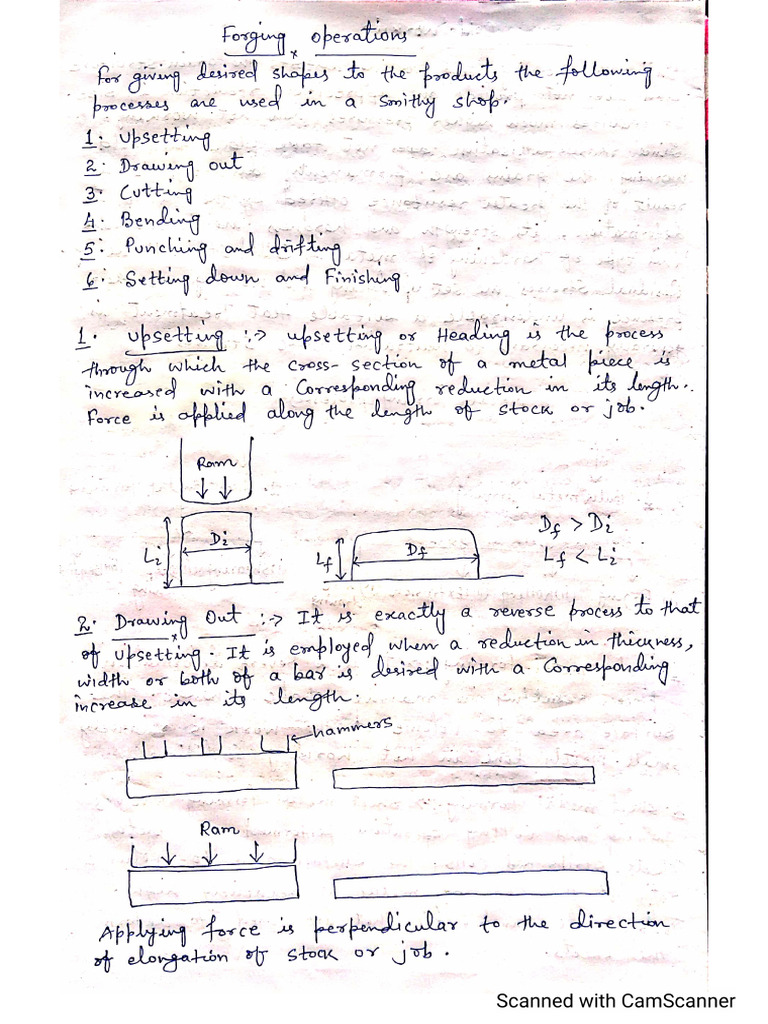 Forging operations
For giving desired shapes to the products the following
processes are used in a smithy shop.
1. Upsetting
2. Drawing out
3. Cutting
4. Bending
5. Punching and drifting
6. Setting down and Finishing
1. Upsetting :-> upsetting or Heading is the process
through which the cross-section of a metal piece is
increased with a Corresponding reduction in its length.
Force is applied along the length of stock or job.
Ram
Li Di Lf Df
Df > Di
Lf < Li
2. Drawing Out :-> It is exactly a reverse process to that
of upsetting. It is employed when a reduction in thickness,
width or both of a bar is desired with a Corresponding
increase in its length.
hammers
Ram
Applying force is perpendicular to the direction
of elongation of stock or job.
Scanned with CamScanner